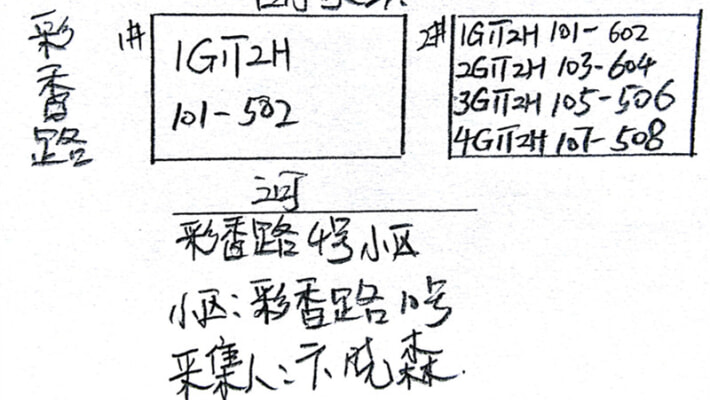 彩香路
1#
1G1T2H
101-502
2#
1G1T2H 101-602
2G1T2H 103-604
3G1T2H 105-506
4G1T2H 107-508
河
彩香路4号小区
小区:彩香路10号
采集人:卞晓森